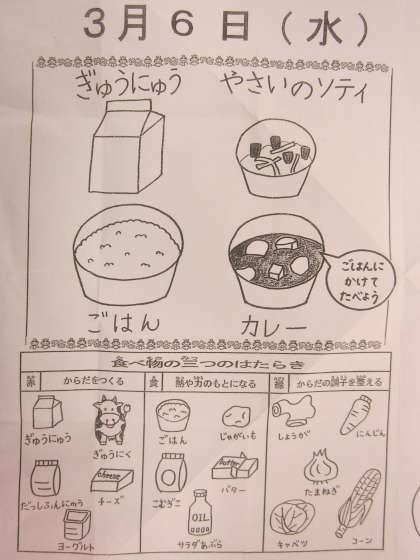 3月6日(水)
ぎゅうにゅう やさいのソティ
ごはんに
かけて
たべよう
ごはん カレー
食べ物の三つのはたらき
赤 からだをつくる 黄 熱や力のもとになる 緑 からだの調子を整える
ぎゅうにゅう ぎゅうにく ごはん じゃがいも しょうが にんじん
cheese butter
だっしふんにゅう チーズ こむぎこ バター たまねぎ
OIL
ヨーグルト サラダあぶら キャベツ コーン